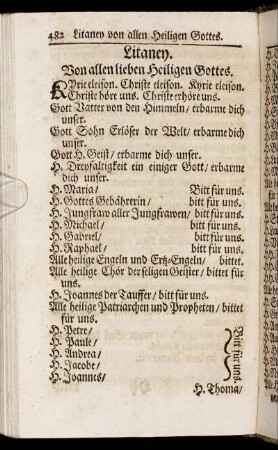 482 Litaney von allen Heiligen Gottes.
Litaney.
Von allen lieben Heiligen Gottes.
Kyrie eleison. Christe eleison. Kyrie eleison.
Christe höre uns. Christe erhöre uns.
Gott Vatter von den Himmeln / erbarme dich
unser.
Gott Sohn Erlöser der Welt / erbarme dich
unser.
Gott H. Geist / erbarme dich unser.
H. Dreyfaltigkeit ein einiger Gott / erbarme
dich unser.
H. Maria / Bitt für uns.
H. Gottes Gebährerin / bitt für uns.
H. Jungfraw aller Jungfrawen / bitt für uns.
H. Michael / bitt für uns.
H. Gabriel / bitt für uns.
H. Raphael / bitt für uns.
Alle heilige Engeln und Ertz-Engeln / bittet.
Alle heilige Chör der seligen Geister / bittet für
uns.
H. Joannes der Tauffer / bitt für uns.
Alle heilige Patriarchen und Propheten / bittet
für uns.
H. Petre /
H. Paule /
H. Andrea /
H. Jacobe /
H. Joannes /
Bitt für uns.
H. Thoma /